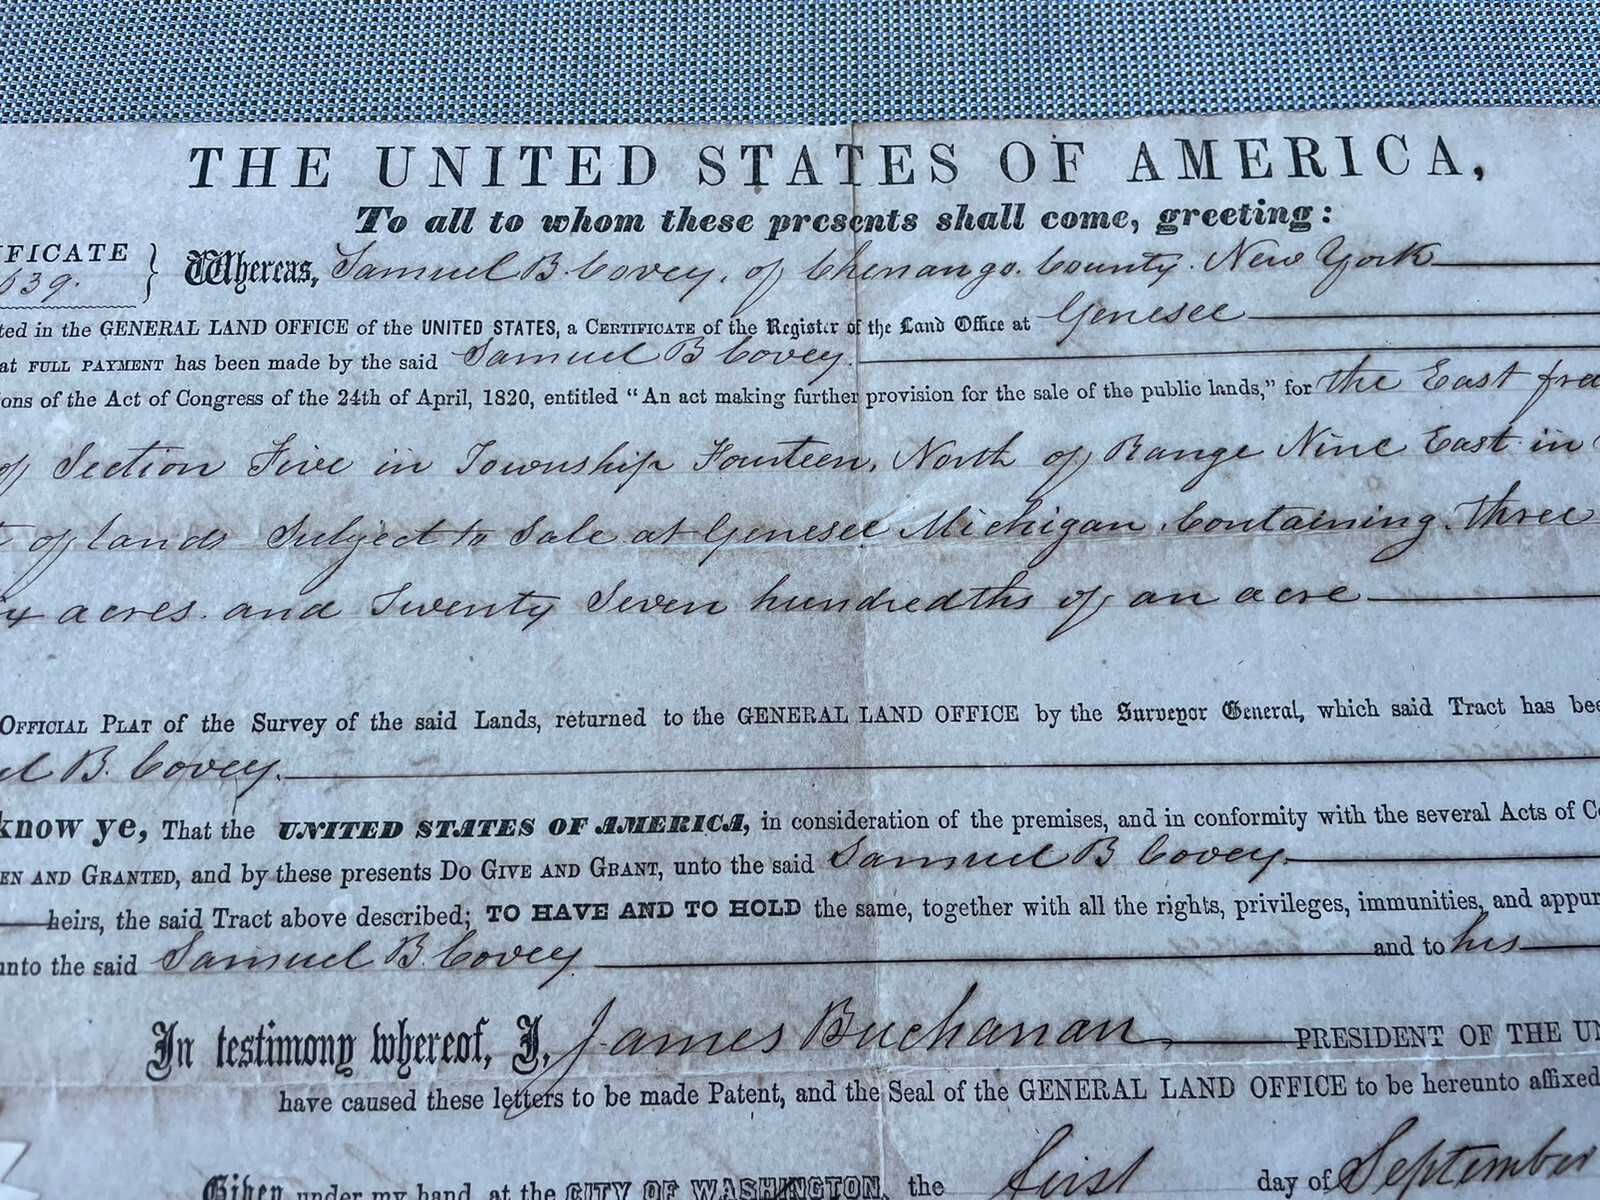 THE UNITED STATES OF AMERICA,
To all to whom these presents shall come, greeting:
IFICATE } Whereas, Samuel B. Covey, of Chenango County. New York
639.
ted in the GENERAL LAND OFFICE of the UNITED STATES, a CERTIFICATE of the Register of the Land Office at Genesee
at FULL PAYMENT has been made by the said Samuel B Covey.
ons of the Act of Congress of the 24th of April, 1820, entitled "An act making further provision for the sale of the public lands," for the East frac
of Section Five in Township Fourteen, North of Range Nine East in
t of lands Subject to Sale at Genesee Michigan Containing three
ix acres. and Twenty Seven hundredths of an acre
OFFICIAL PLAT of the Survey of the said Lands, returned to the GENERAL LAND OFFICE by the Surveyor General, which said Tract has bee
el B. Covey.
know ye, That the UNITED STATES OF AMERICA, in consideration of the premises, and in conformity with the several Acts of Co
EN AND GRANTED, and by these presents DO GIVE AND GRANT, unto the said Samuel B Covey.
heirs, the said Tract above described; TO HAVE AND TO HOLD the same, together with all the rights, privileges, immunities, and appur
unto the said Samuel B. Covey and to his
In testimony whereof, I, James Buchanan PRESIDENT OF THE UN
have caused these letters to be made Patent, and the Seal of the GENERAL LAND OFFICE to be hereunto affixed
Given under my hand, at the CITY OF WASHINGTON, the first day of September